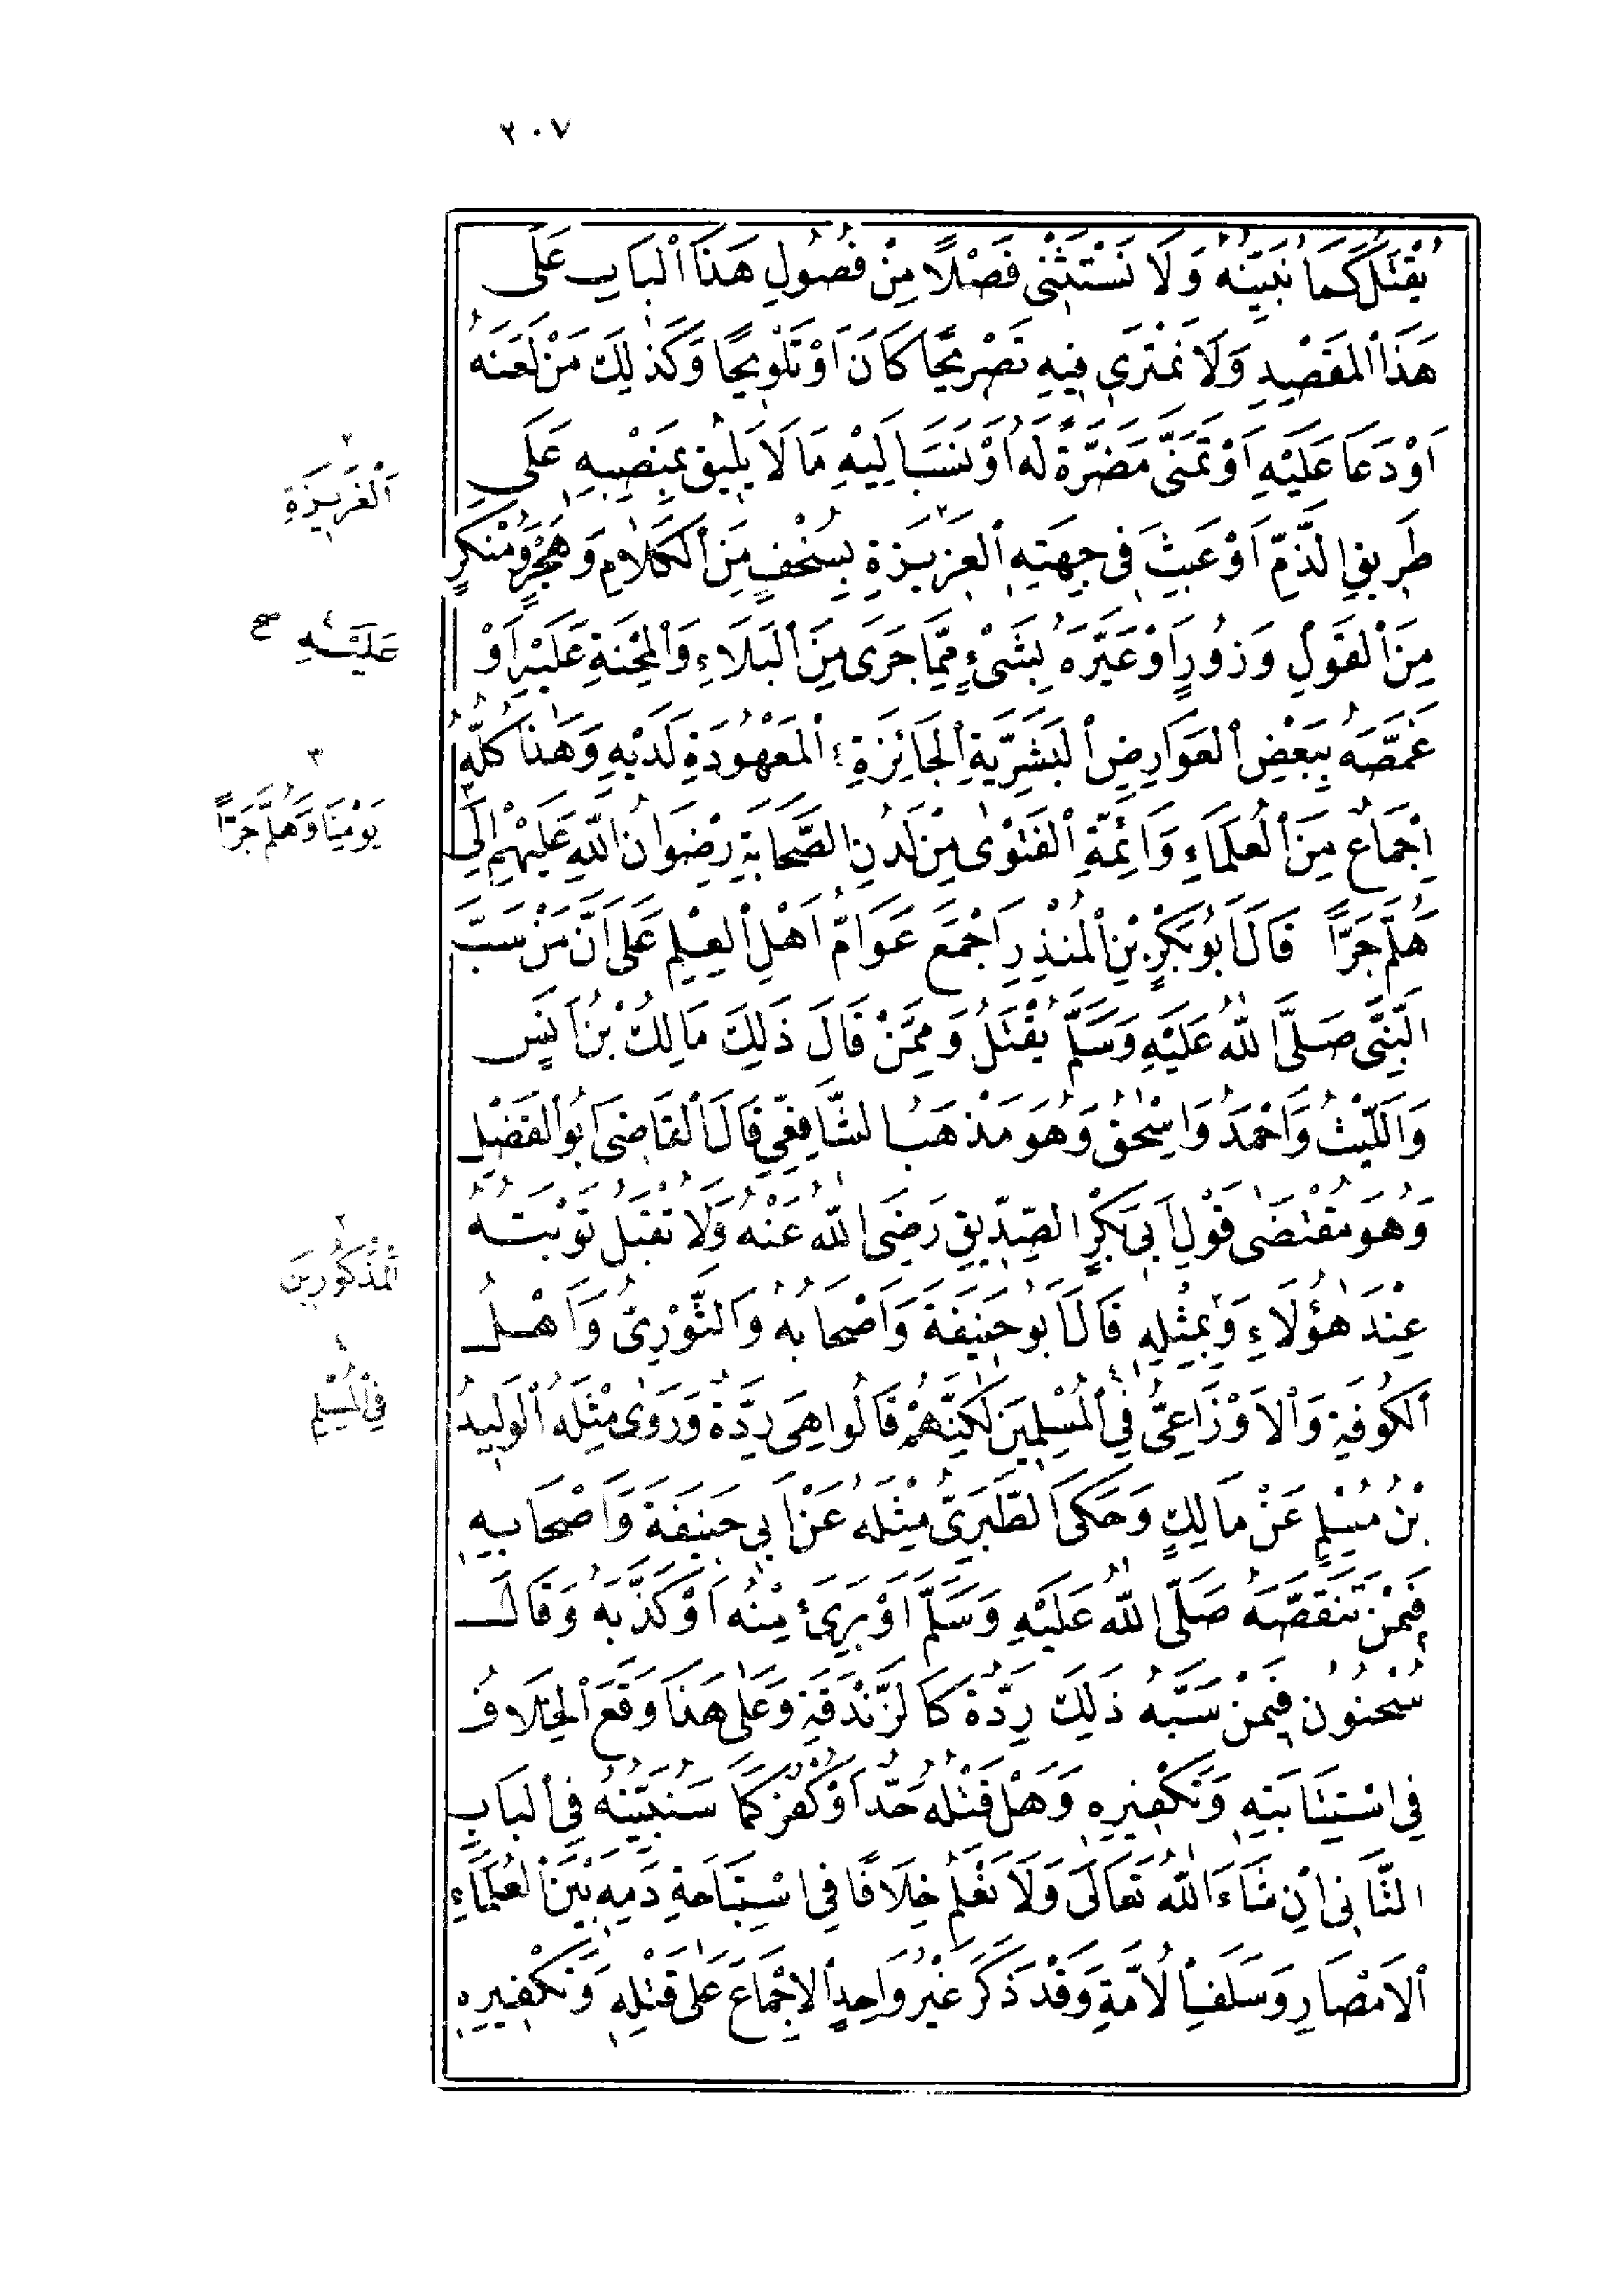 ٢٠٧
يُقْتَلُ كَمَا نُبَيِّنُهُ وَلَا نَسْتَثْنِي فَصْلًا مِنْ فُصُولِ هَذَا الْبَابِ عَلَى
هَذَا الْمَقْصِدِ وَلَا نَمْتَرِي فِيهِ تَصْرِيحًا كَانَ اَوْ تَلْوِيحًا وَكَذٰلِكَ مَنْ لَعَنَهُ
اَوْ دَعَا عَلَيْهِ اَوْ تَمَنَّى مَضَرَّةً لَهُ اَوْ نَسَبَ اِلَيْهِ مَا لَا يَلِيقُ بِمَنْصِبِهِ عَلَى
طَرِيقِ الذَّمِّ اَوْ عَبِثَ فِي جِهَتِهِ الْعَزِيزَةِ بِسُخْفٍ مِنَ الْكَلَامِ وَهُجْرٍ وَمُنْكَرٍ
مِنَ الْقَوْلِ وَزُورٍ اَوْ عَيَّرَهُ بِشَىْءٍ مِمَّا جَرَى مِنَ الْبَلَاءِ وَالْمِحْنَةِ عَلَيْهِ اَوْ
غَمَصَهُ بِبَعْضِ الْعَوَارِضِ الْبَشَرِيَّةِ الْجَائِزَةِ ؛ الْمَعْهُودَةِ لَدَيْهِ وَهَذَا كُلُّهُ
اِجْمَاعٌ مِنَ الْعُلَمَاءِ وَاَئِمَّةِ الْفَتْوٰى مِنْ لَدُنِ الصَّحَابَةِ رِضْوَانُ اللّٰهِ عَلَيْهِمْ اِلَى
هَلُمَّ جَرًّا قَالَ اَبُو بَكْرِ بْنِ الْمُنْذِرِ اَجْمَعَ عَوَامُّ اَهْلِ الْعِلْمِ عَلَى اَنَّ مَنْ سَبَّ
النَّبِيَّ صَلَّى اللّٰهُ عَلَيْهِ وَسَلَّمَ يُقْتَلُ وَمِمَّنْ قَالَ ذَلِكَ مَالِكُ بْنُ اَنَسٍ
وَاللَّيْثُ وَاَحْمَدُ وَاِسْحٰقُ وَهُوَ مَذْهَبُ الشَّافِعِيِّ قَالَ الْقَاضِى اَبُو الْفَضْلِ
وَهُوَ مُقْتَضٰى قَوْلِ اَبِى بَكْرٍ الصِّدِّيقِ رَضِىَ اللّٰهُ عَنْهُ وَلَا تُقْبَلُ تَوْبَتُهُ
عِنْدَ هٰؤُلَاءِ وَبِمِثْلِهِ قَالَ اَبُو حَنِيفَةَ وَاَصْحَابُهُ وَالثَّوْرِىُّ وَاَهْلُ
الْكُوفَةِ وَالْاَوْزَاعِىُّ فِي الْمُسْلِمِينَ لٰكِنَّهُمْ قَالُوا هِىَ رِدَّةٌ وَرَوٰى مِثْلَهُ الْوَلِيدُ
بْنُ مُسْلِمٍ عَنْ مَالِكٍ وَحَكَى الطَّبَرِىُّ مِثْلَهُ عَنْ اَبِي حَنِيفَةَ وَاَصْحَابِهِ
فِيمَنْ تَنَقَّصَهُ صَلَّى اللّٰهُ عَلَيْهِ وَسَلَّمَ اَوْ بَرِئَ مِنْهُ اَوْ كَذَّبَهُ وَقَالَ
سُحْنُونٌ فِيمَنْ سَبَّهُ ذَلِكَ رِدَّةٌ كَالزَّنْدَقَةِ وَعَلٰى هَذَا وَقَعَ الْخِلَافُ
فِي اسْتِتَابَتِهِ وَتَكْفِيرِهِ وَهَلْ قَتْلُهُ حَدٌّ اَوْ كُفْرٌ كَمَا سَنُبَيِّنُهُ فِي الْبَابِ
الثَّانِى اِنْ شَاءَ اللّٰهُ تَعَالَى وَلَا نَعْلَمُ خِلَافًا فِي اسْتِبَاحَةِ دَمِهِ بَيْنَ الْعُلَمَاءِ
الْاَمْصَارِ وَسَلَفِ الْاُمَّةِ وَقَدْ ذَكَرَ غَيْرُ وَاحِدٍ الْاِجْمَاعَ عَلٰى قَتْلِهِ وَتَكْفِيرِهِ
٢
اَلْغَرِيزَةِ
٤
عَلَيْهِ صح
٣
يَوْمِنَا وَهَلُمَّ جَرًّا
٢
الْمَذْكُورِينَ
٨
فِي الْمُسْلِمِ